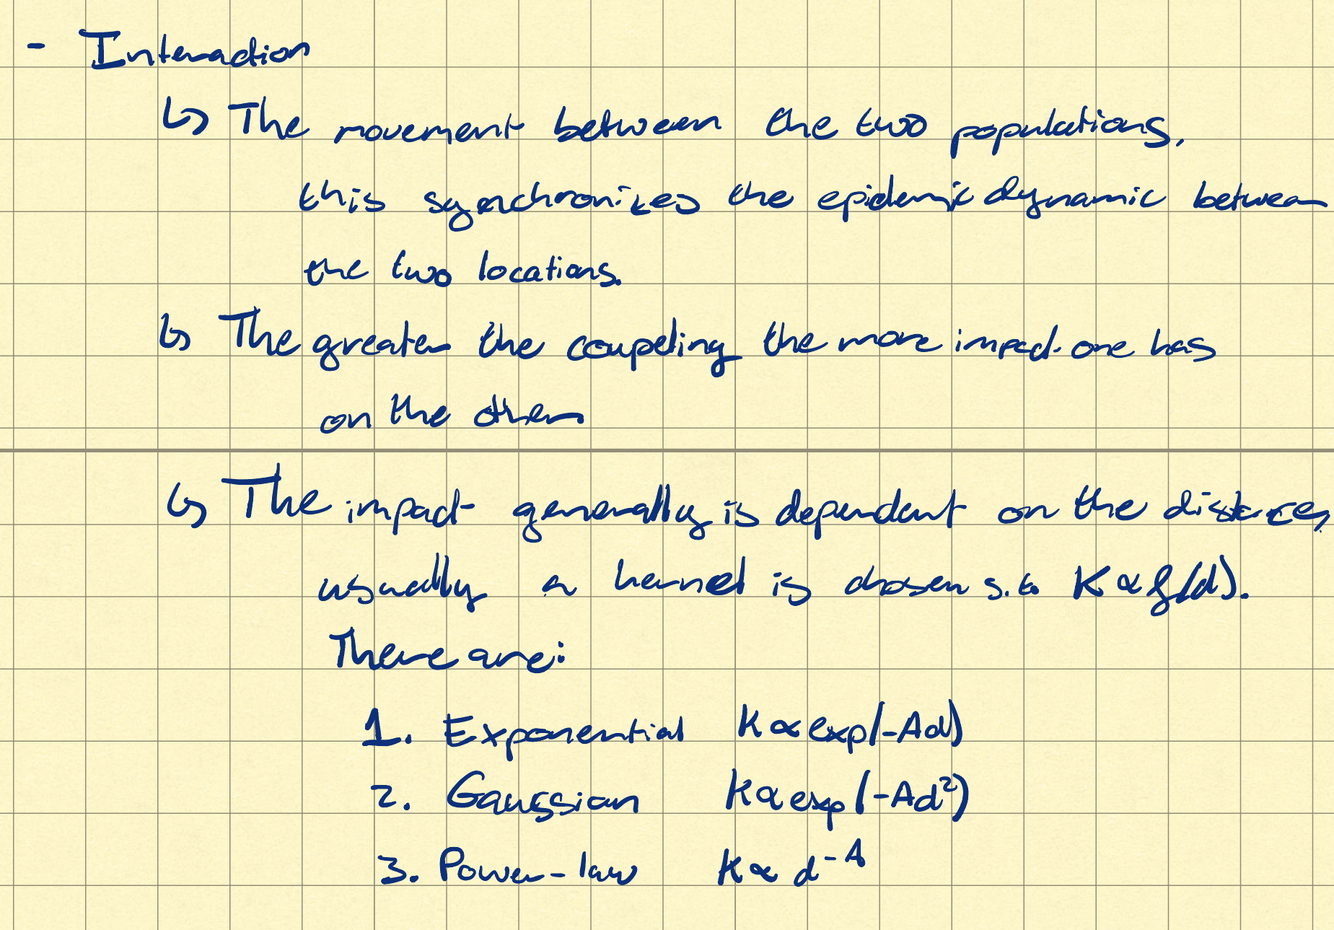 - Interaction
↳ The movement between the two populations,
this synchronizes the epidemic dynamic between
the two locations.
↳ The greater the coupeling the more impact one has
on the other
↳ The impact generally is dependent on the distances,
usually a kernel is chosen s.t. K ∝ f(d).
There are:
1. Exponential K ∝ exp(-Ad)
2. Gaussian K ∝ exp(-Ad²)
3. Power-law K ∝ d⁻ᴬ